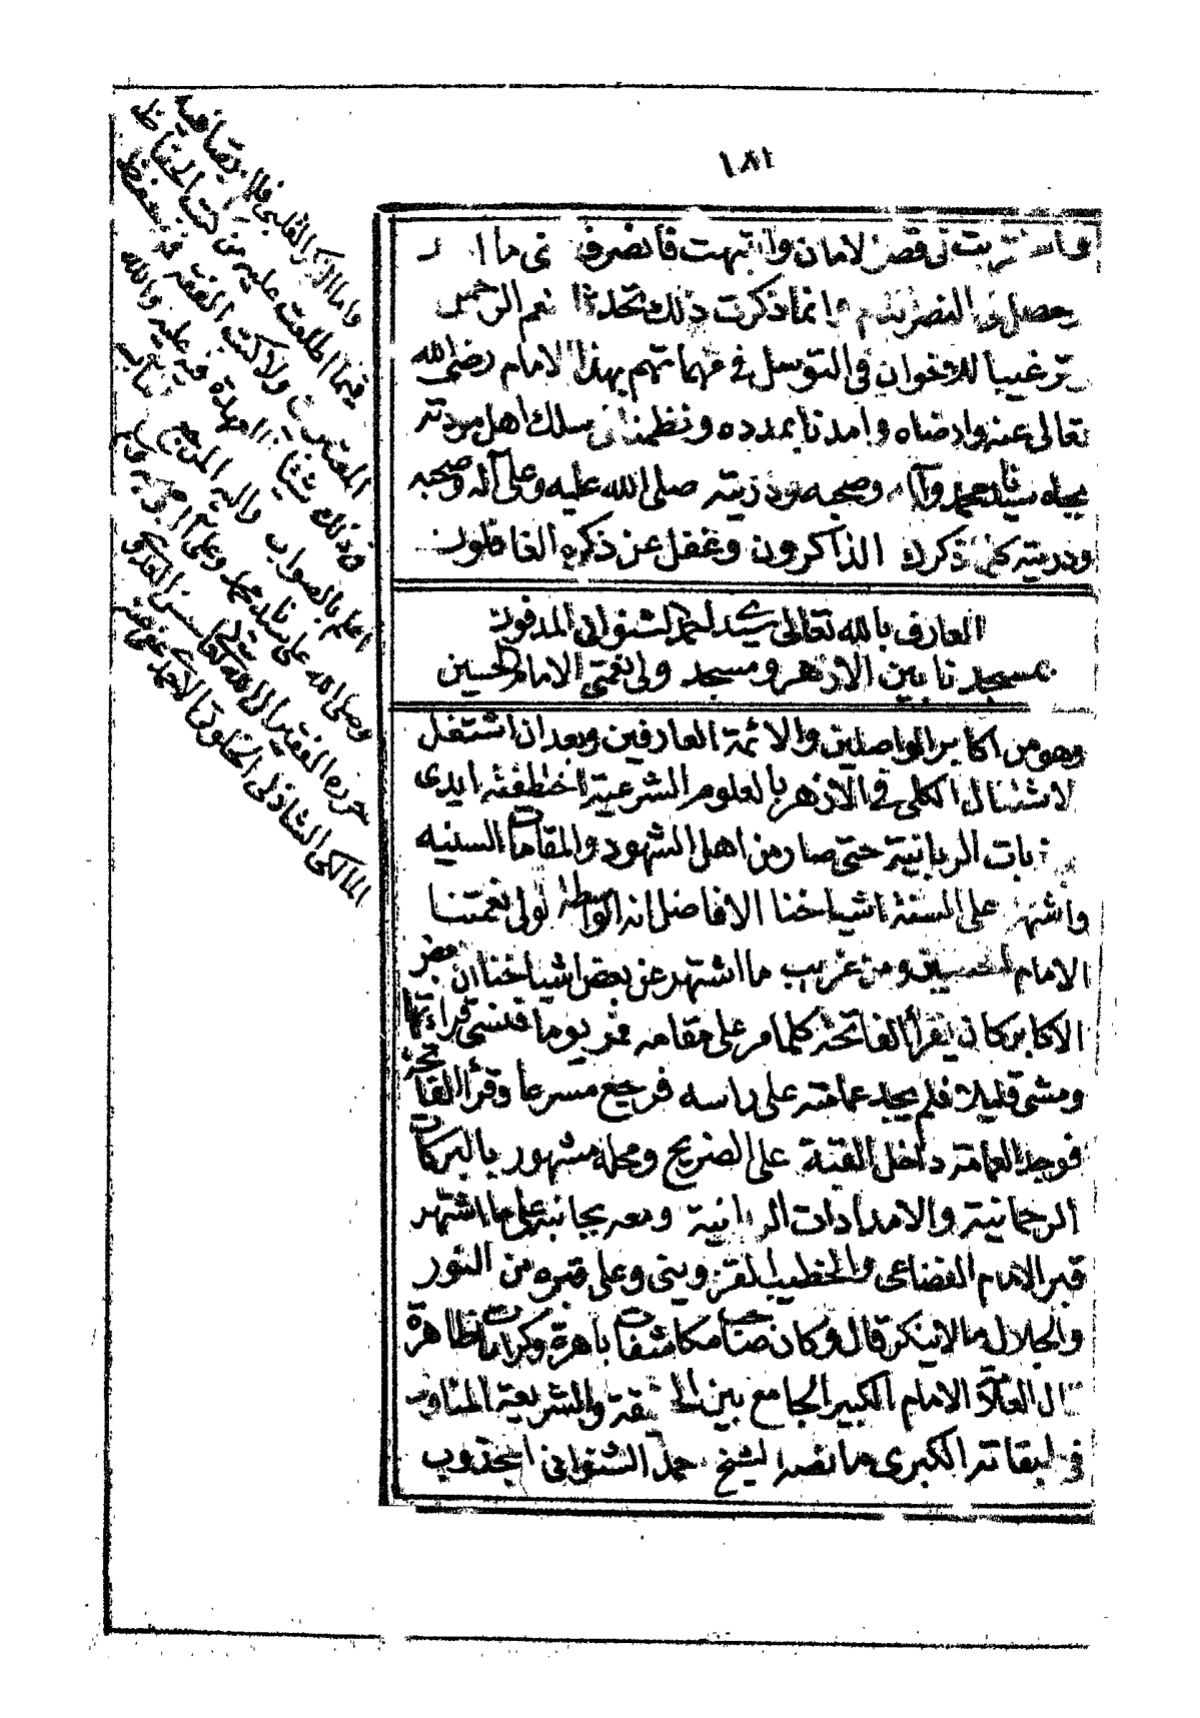 ١٨١
في قصر الامان وانتبهت فانصرف
يحصل لي النصر وانما ذكرت ذلك تحدثا نعم الرحمن
ترغيبا للاخوان في التوسل في مهماتهم بهذا الامام رضي الله
تعالى عنه وارضاه وامدنا بمدده ونظمنا في سلك اهل مودته
بجاه سيدنا محمد وآله وصحبه وذريته صلى الله عليه وعلى آله وصحبه
وذريته كلما ذكرك الذاكرون وغفل عن ذكره الغافلون
العارف بالله تعالى سيدي احمد الشنواني المدفون
بمسجدنا بين الازهر ومسجد ولي نعمتي الامام الحسين
وهو من اكابر الواصلين والائمة العارفين وبعد ان اشتغل
الاشتغال الكلي في الازهر بالعلوم الشرعية اختطفته ايدي
الربانية حتى صار من اهل الشهود والمقامات السنيه
واشتهر على السنة اشياخنا الافاضل انه الواسطة لولي نعمتنا
الامام الحسين ومن غريب ما اشتهر عن بعض اشياخنا ان بعض
الاكابر كان يقرأ الفاتحة كلما مر على مقامه فمر يوما فنسي قراءتها
ومشى قليلا فلم يجد عمامته على راسه فرجع مسرعا وقرأ الفاتحة
فوجد العمامة داخل القبة على الضريح ومحله مشهور بالبركات
الرحمانية والامدادات الربانية ومعه بجانبه على ما اشتهر
قبر الامام القضاعى والخطيب القزوينى وعلى قبره من النور
والجلال ما لا ينكر قال وكان صاحب مكاشفات باهرة وكرامات ظاهرة
قال العلامة الامام الكبير الجامع بين الحقيقة والشريعة المناوى
في طبقاته الكبرى ما نصه الشيخ احمد الشنوانى المجذوب
واما الذكر القلبي فلا
فيما اطلعت عليه من كتب الحفاظ
ولا كتب الفقه
وذلك شيئا العهدة فيه عليه والله
اعلم بالصواب واليه المرجع
وصلى الله على سيدنا محمد وعلى آله
حرره الفقير الى الله تعالى حسن العدوي
المالكى الشاذلى الخلوتى الاحمدى عفى عنه